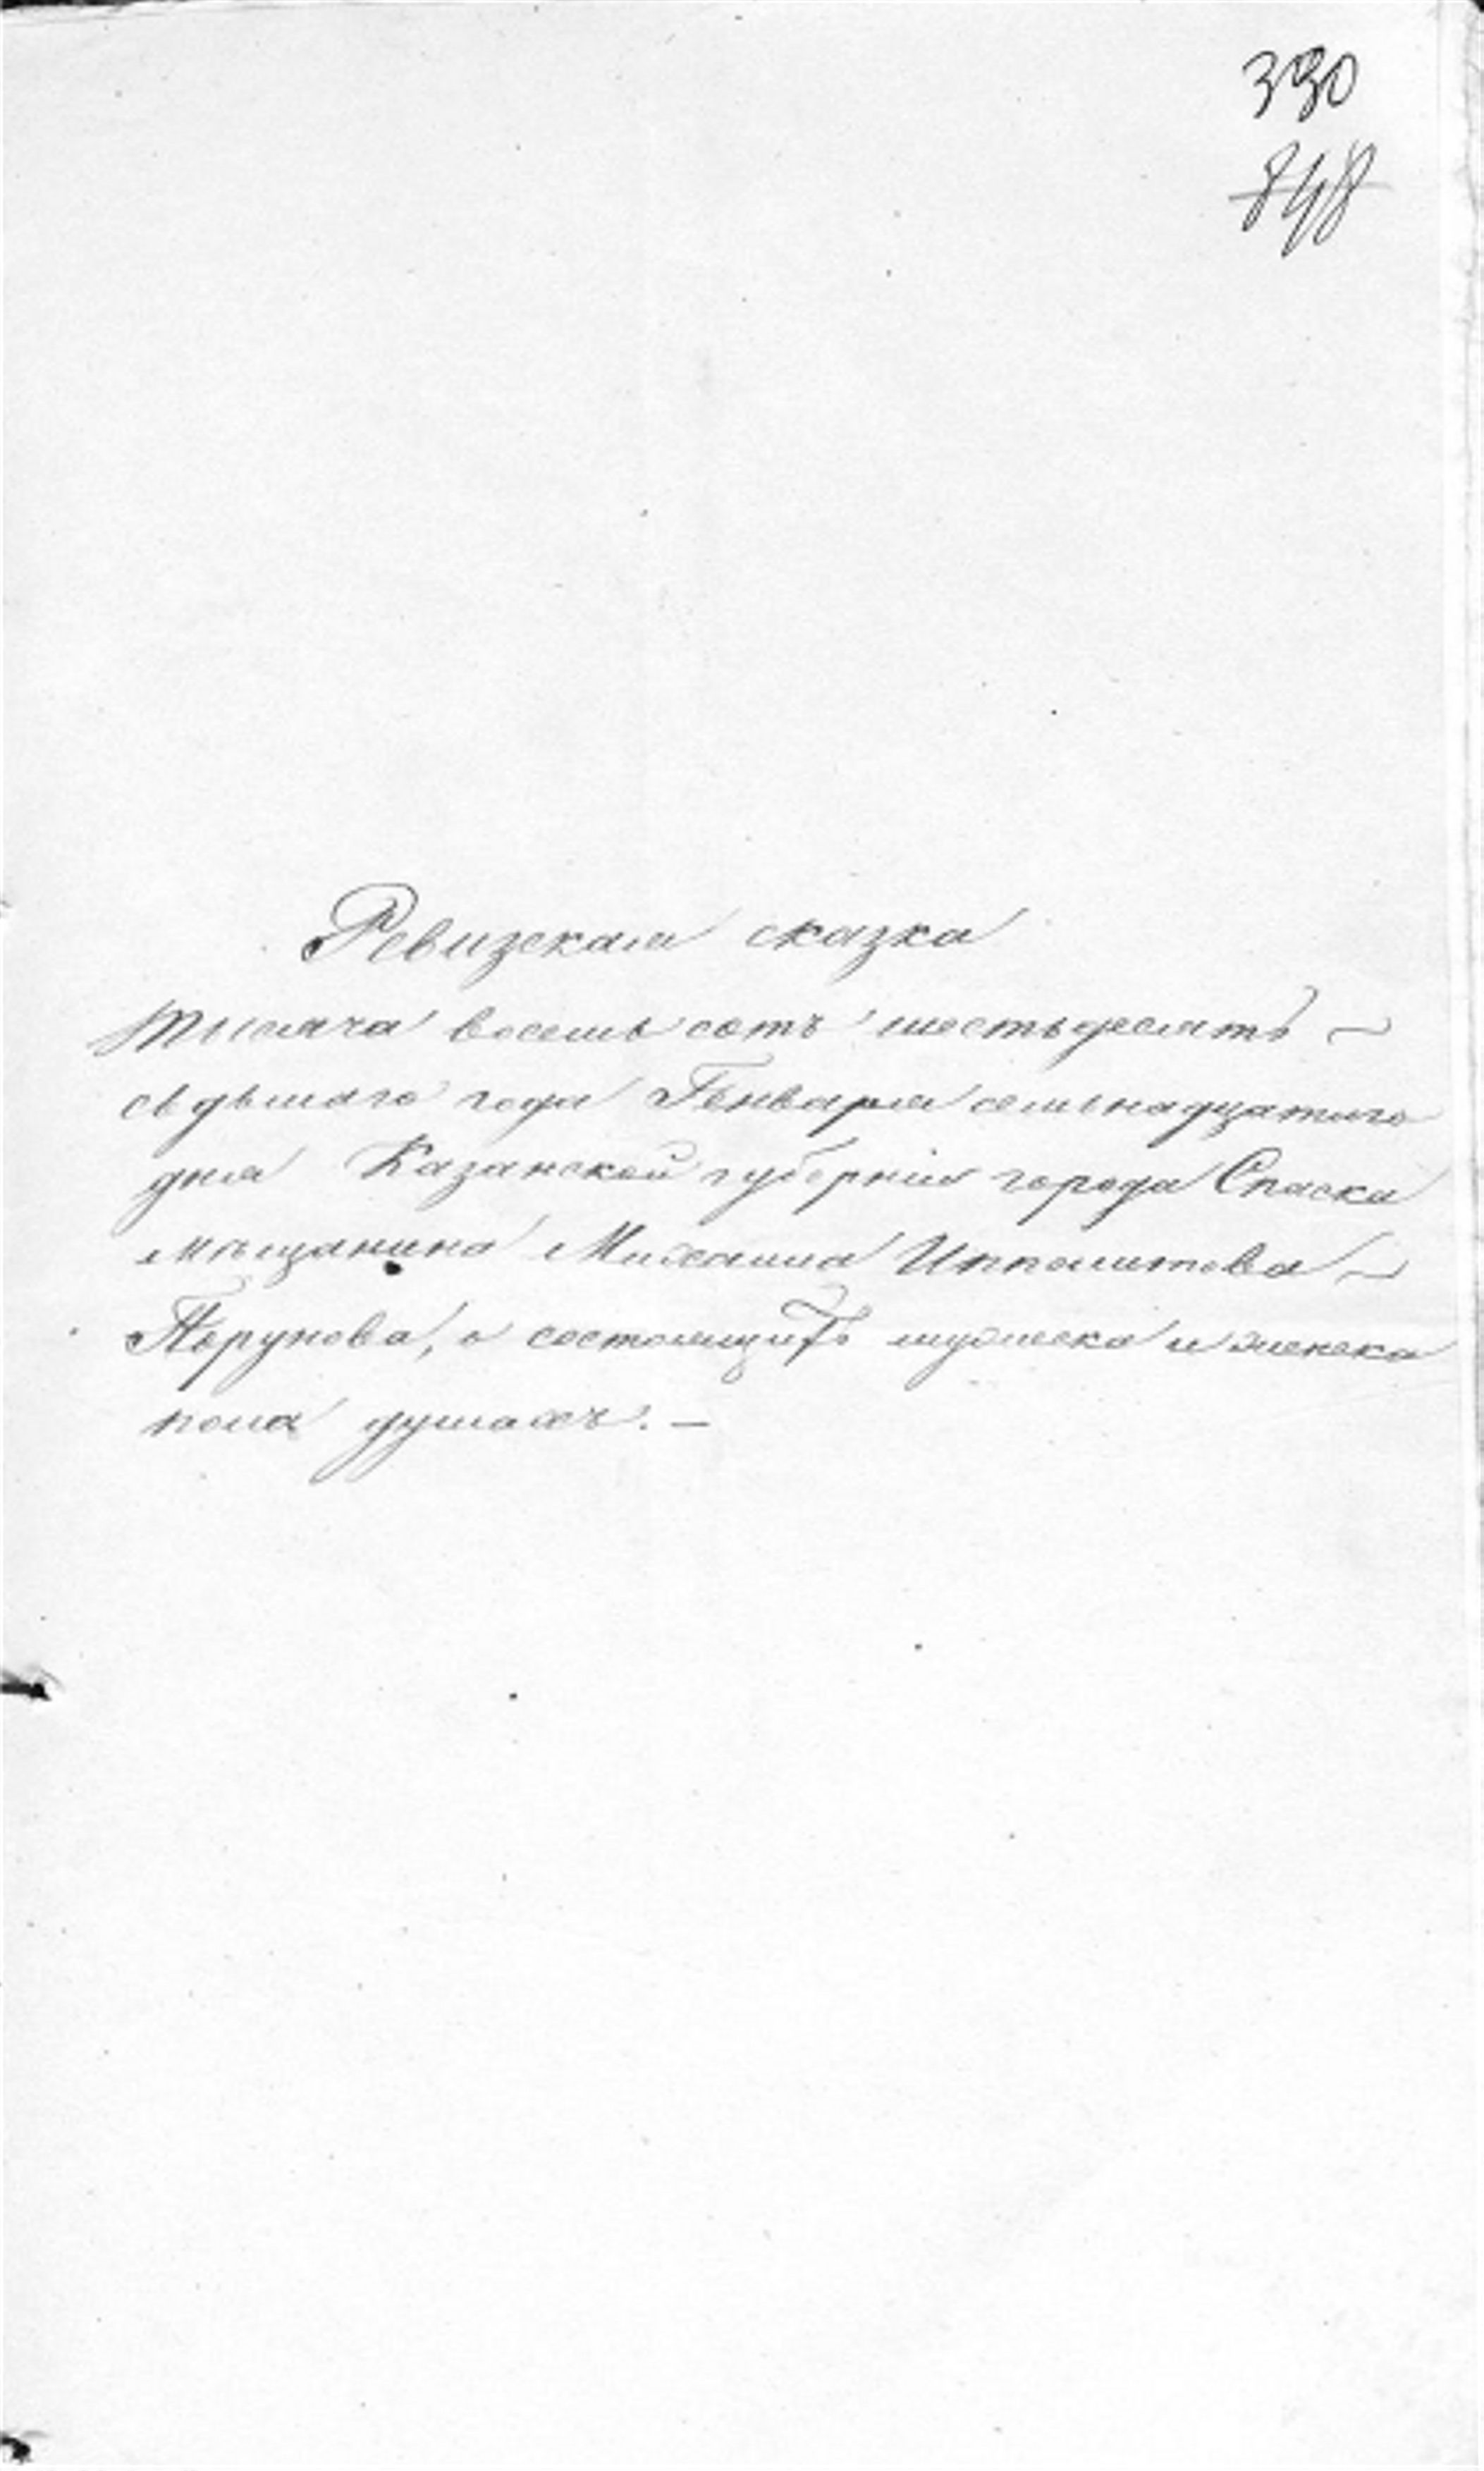 330
848
Ревизская сказка
Тысяча восемь сотъ шестьдесятъ
сѣдьмаго года Генваря семьнадцатого
дня Казанской губерніи города Спаска
мѣщанина Михаила Ипполитова
Перунова, о состоящихъ мужеска и женска
пола душахъ. —